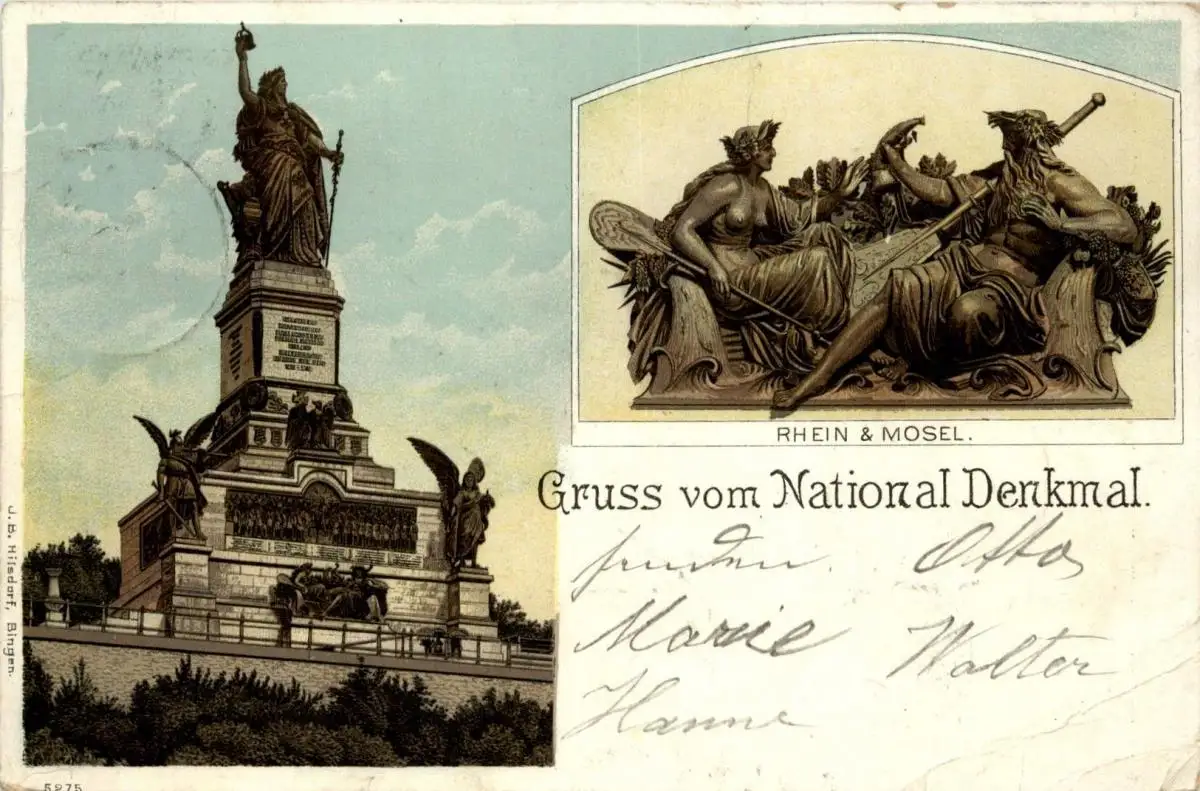 RHEIN & MOSEL.
Gruss vom National Denkmal.
senden. Otto
Marie Walter
Hanne
J. B. Hilsdorf, Bingen.
5275